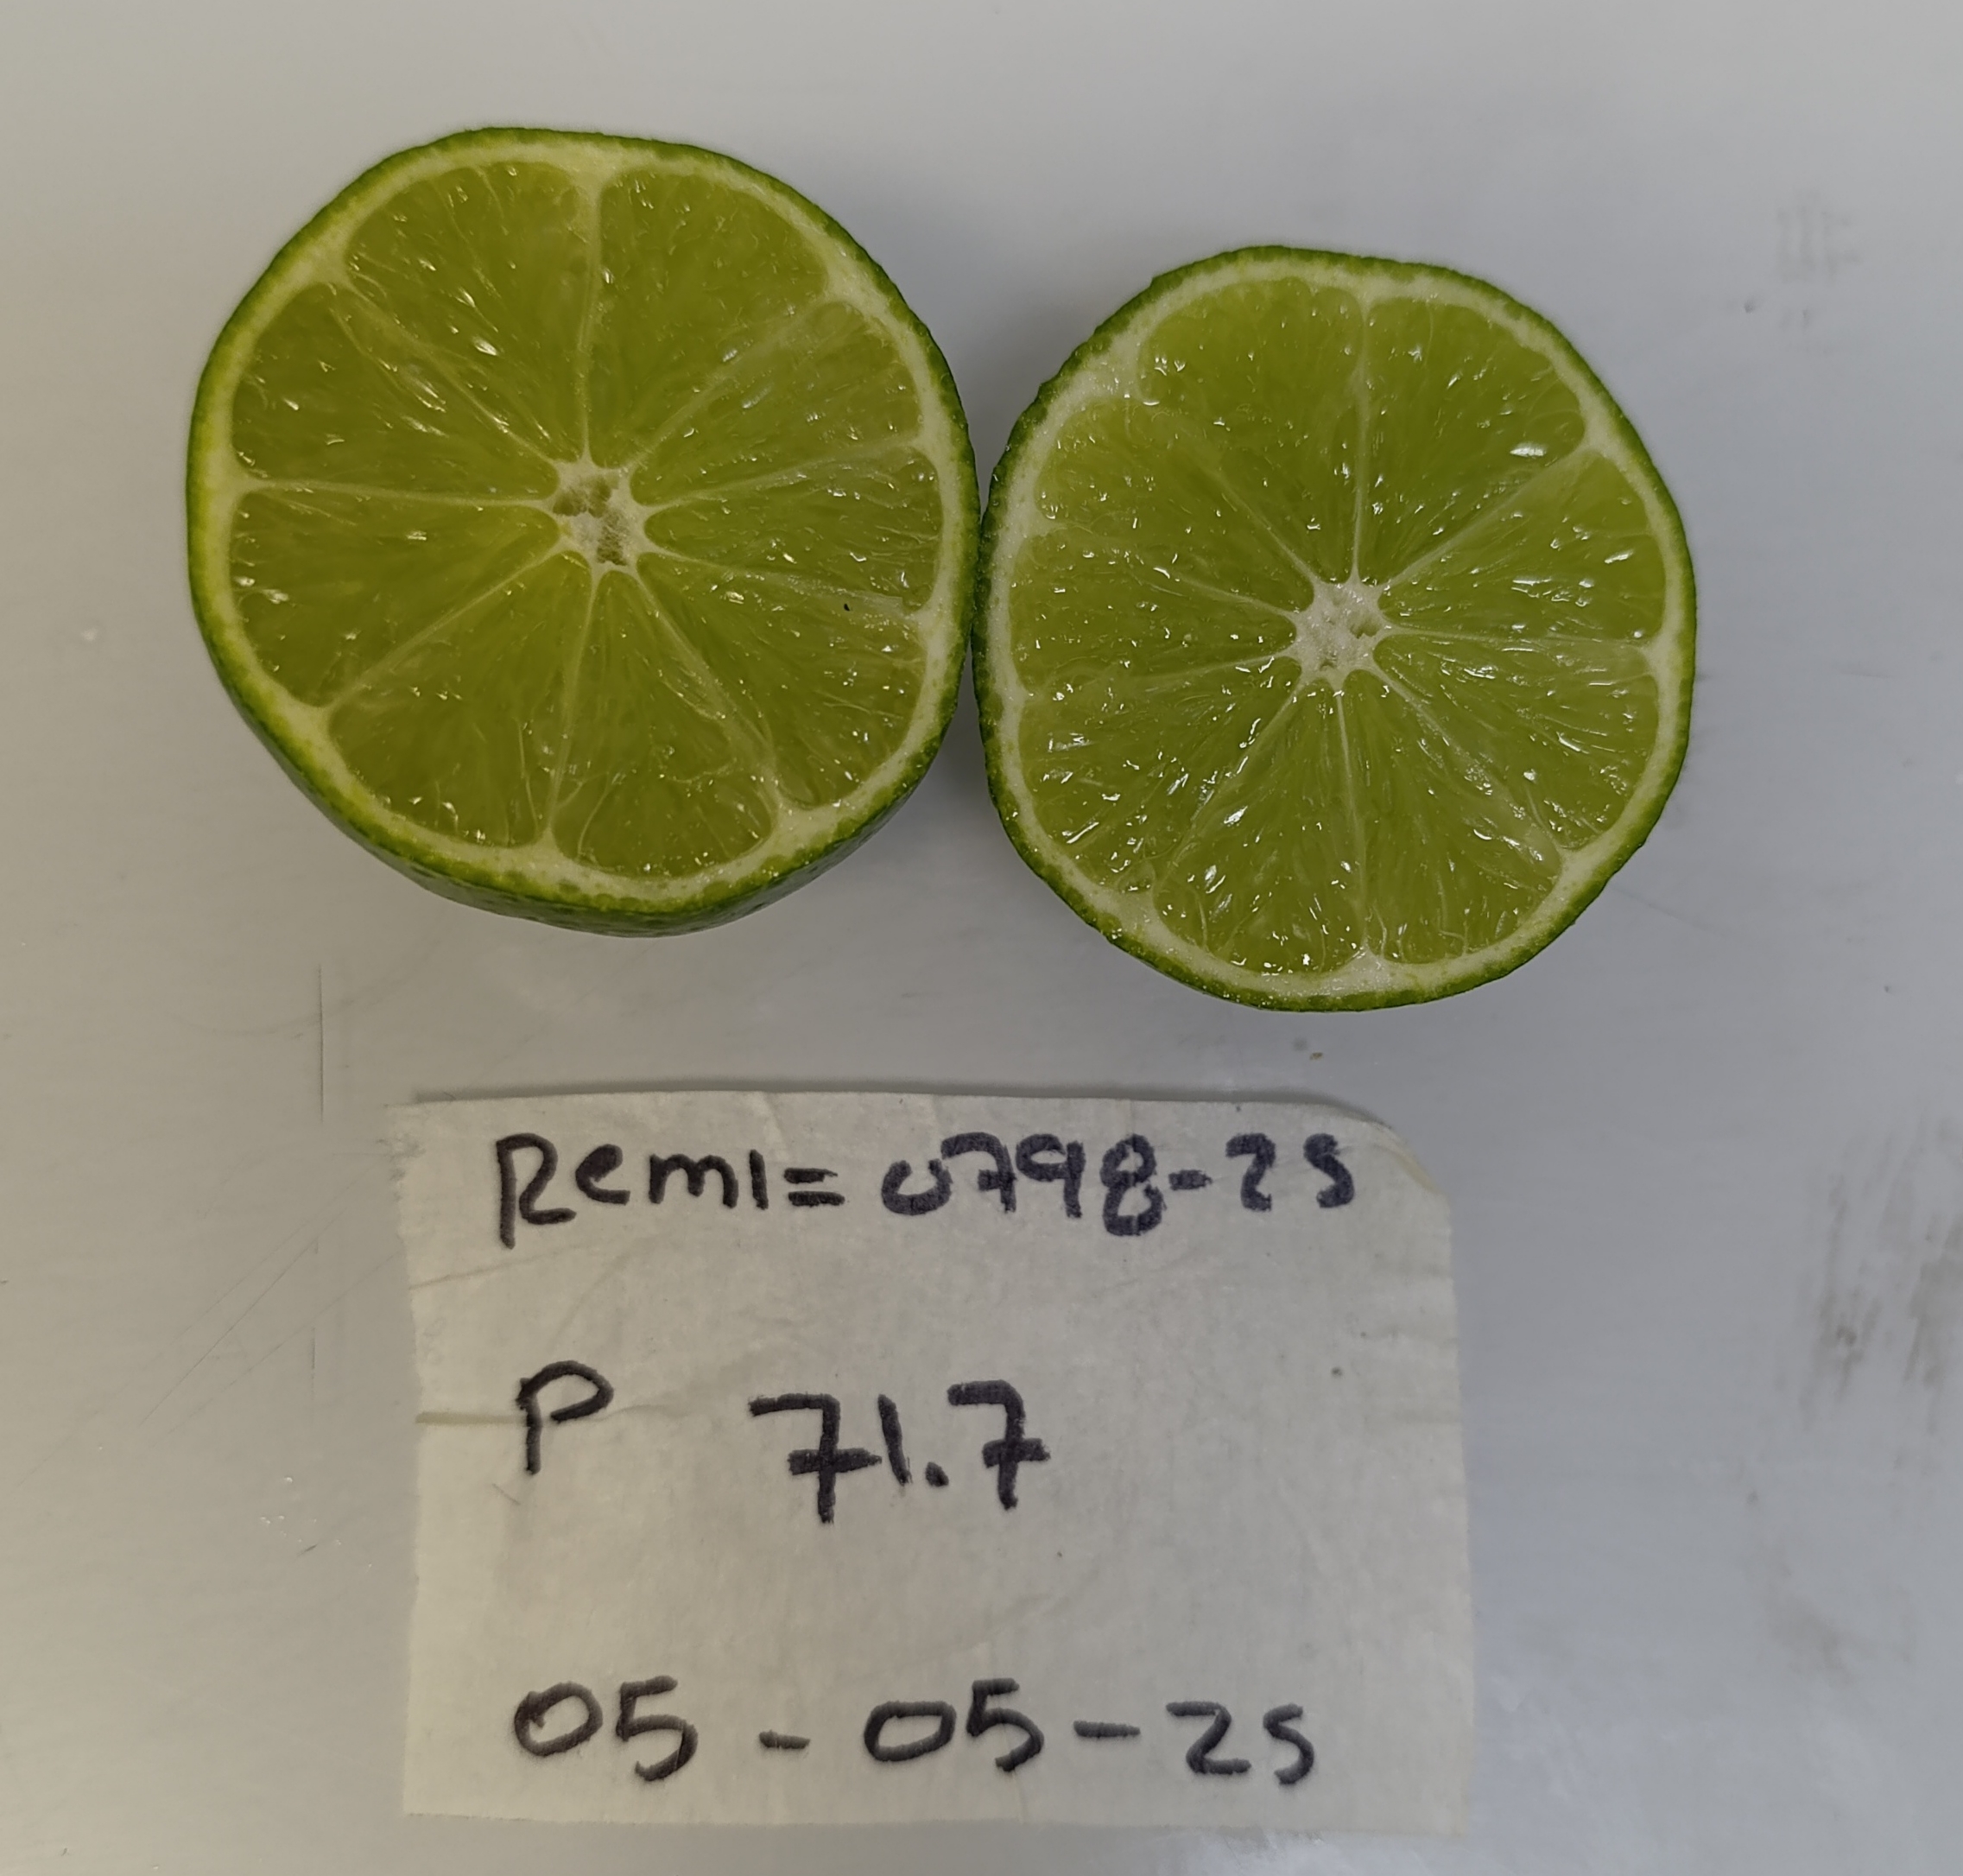 Remi= 0798-25
P 71.7
05-05-25